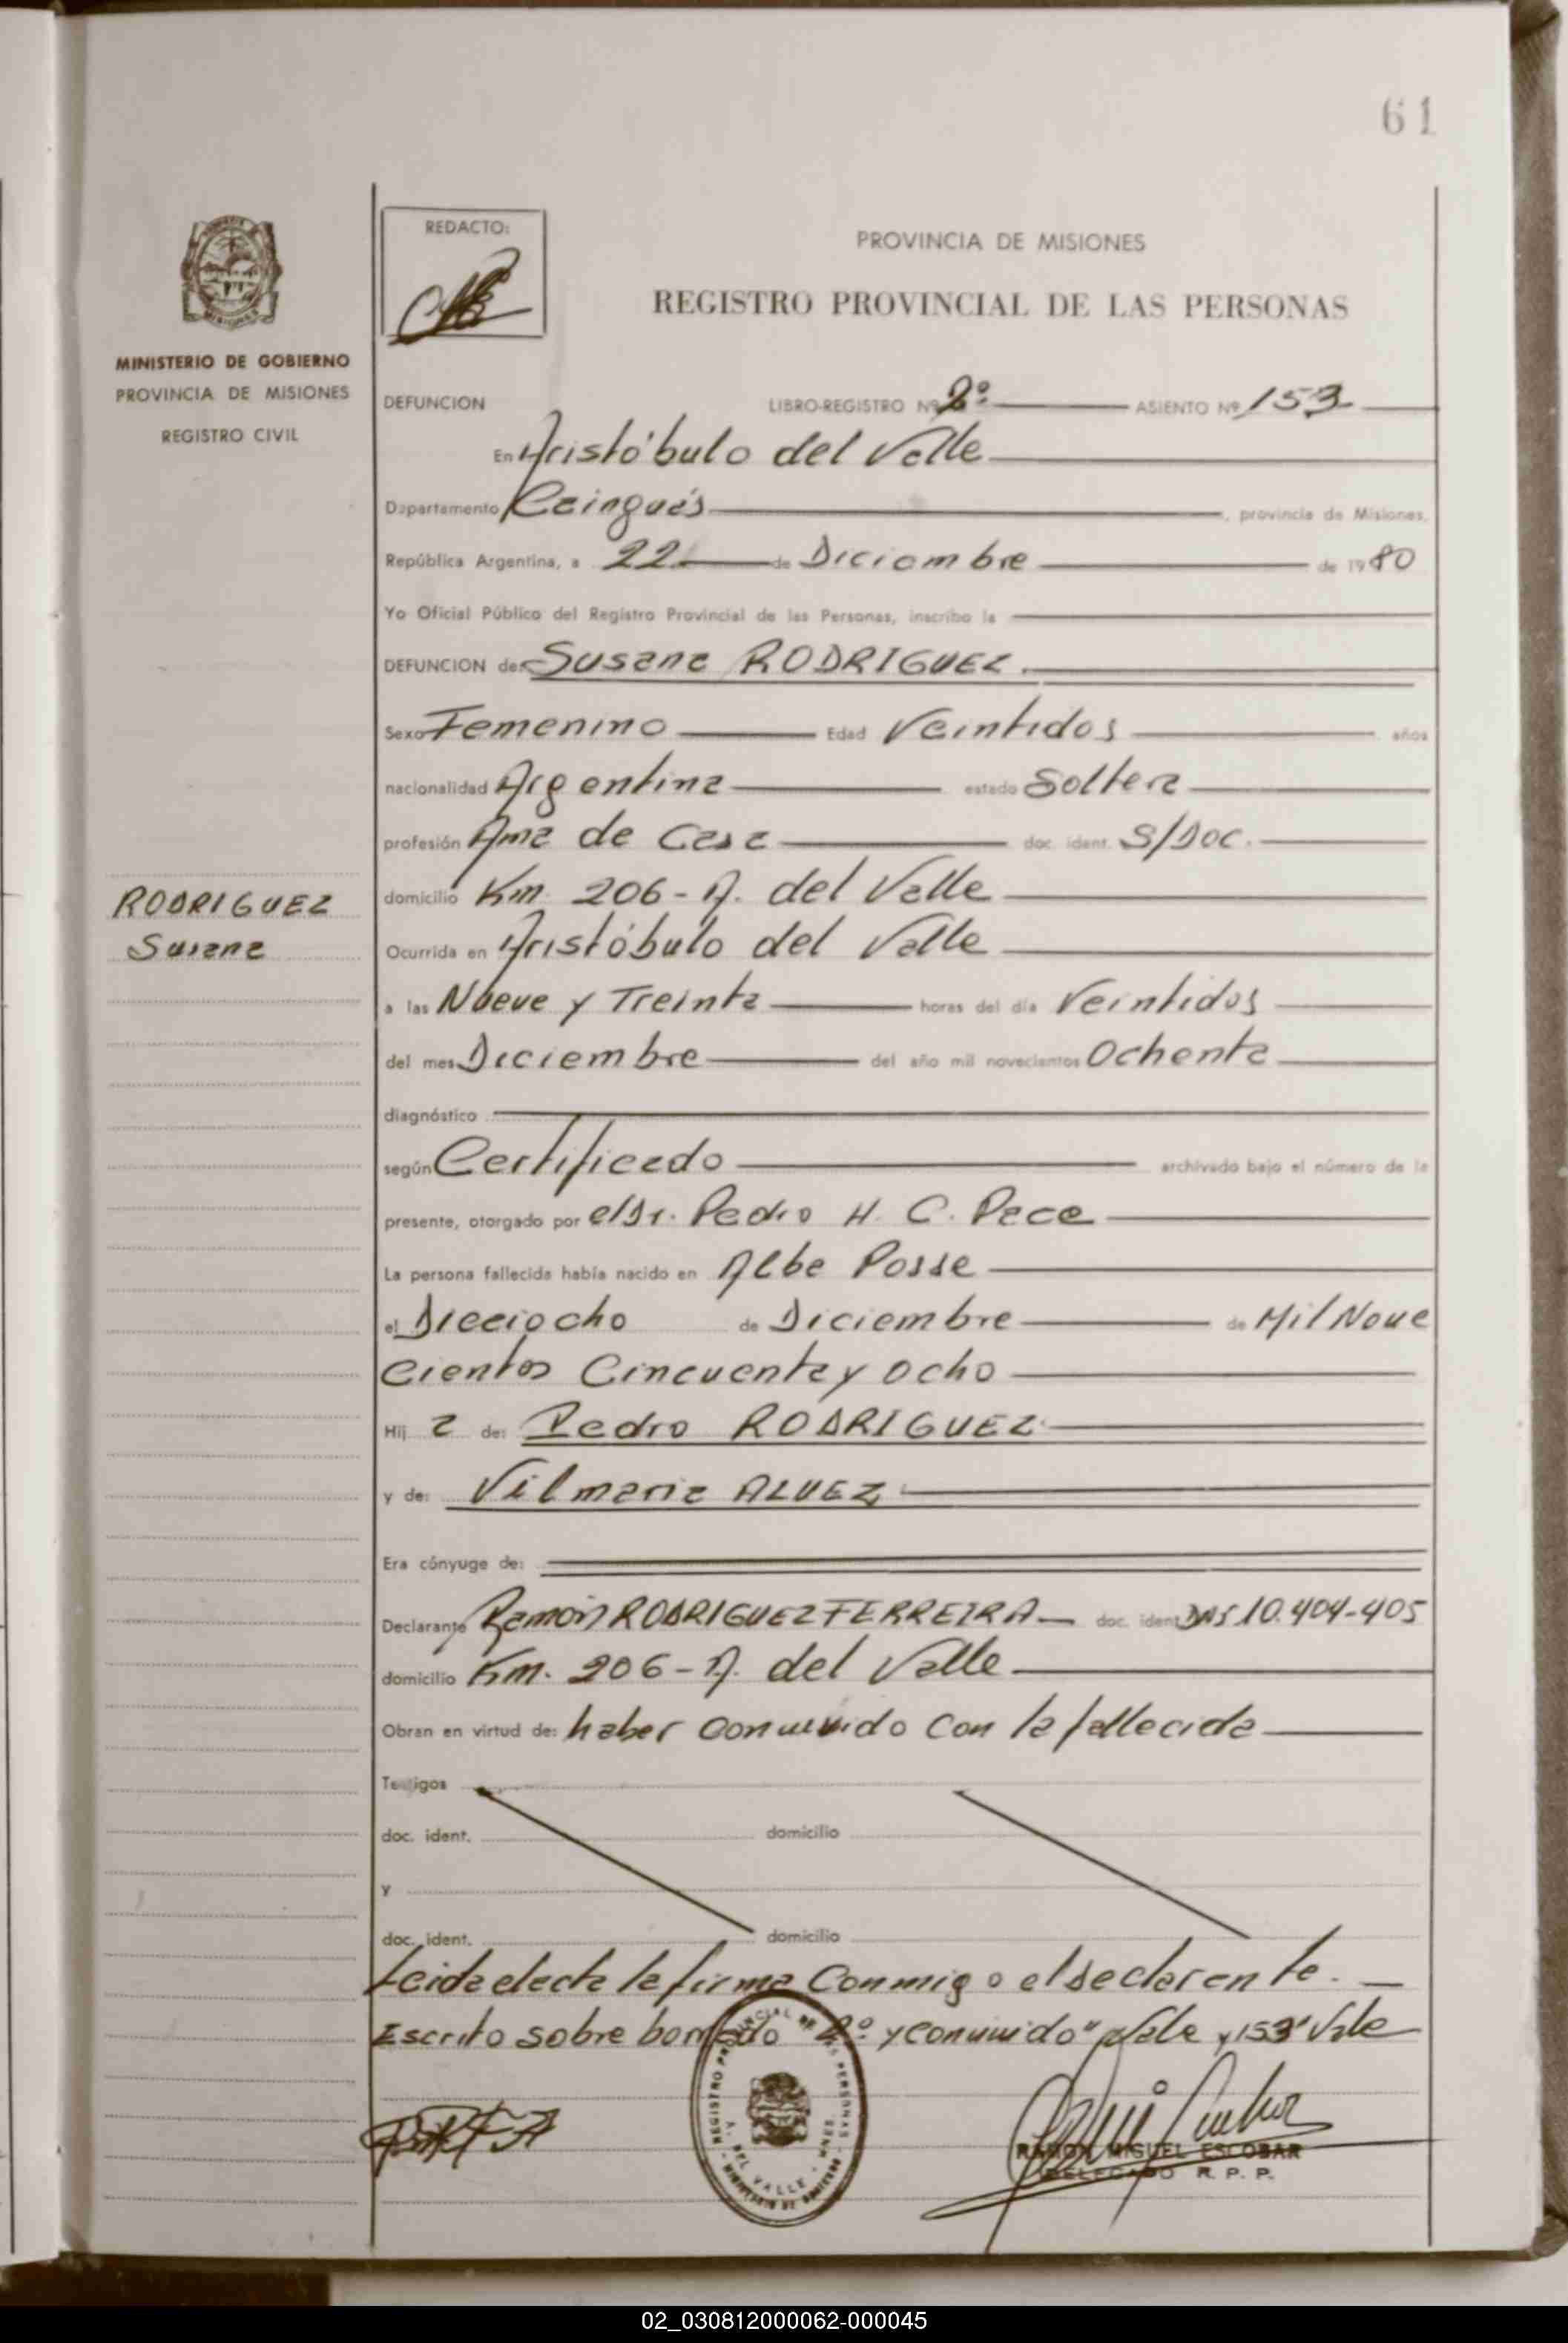 61
REDACTO:
PROVINCIA DE MISIONES
REGISTRO PROVINCIAL DE LAS PERSONAS
MINISTERIO DE GOBIERNO
PROVINCIA DE MISIONES
REGISTRO CIVIL
DEFUNCION LIBRO-REGISTRO Nº 2º ASIENTO Nº 153
En Aristóbulo del Valle
Departamento Caінguás, provincia de Misiones,
República Argentina, a 22 de Diciembre de 1980
Yo Oficial Público del Registro Provincial de las Personas, inscribo la
DEFUNCION de: Susana RODRIGUEZ.
Sexo Femenino Edad Veintidos años
nacionalidad Argentina estado Soltera
profesión Ama de Casa doc. ident. S/Doc.
RODRIGUEZ
Susana
domicilio Km. 206 - A. del Valle
Ocurrida en Aristóbulo del Valle
a las Nueve y Treinta horas del día Veintidos
del mes Diciembre del año mil novecientos Ochenta
diagnóstico
según Certificado archivado bajo el número de la
presente, otorgado por el Dr. Pedro H. C. Pace
La persona fallecida había nacido en Alba Posse
el Dieciocho de Diciembre de Mil Nove
cientos Cincuenta y ocho
Hij a de: Pedro RODRIGUEZ
y de: Vilmaria ALVEZ
Era cónyuge de:
Declarante Ramón RODRIGUEZ FERREIRA doc. ident. DNI 10.404-405
domicilio Km. 206 - A. del Valle
Obran en virtud de: haber convivido con la fallecida
Testigos
doc. ident. domicilio
y
doc. ident. domicilio
Leida el acta la firma Conmigo el declarante.
Escrito sobre borrado "2º y convivido" Vale y "153" Vale
REGISTRO PROVINCIAL DE LAS PERSONAS
A. DEL VALLE - MNES.
MINISTERIO DE GOBIERNO
RAMON MIGUEL ESCOBAR
DELEGADO R. P. P.
02_030812000062-000045